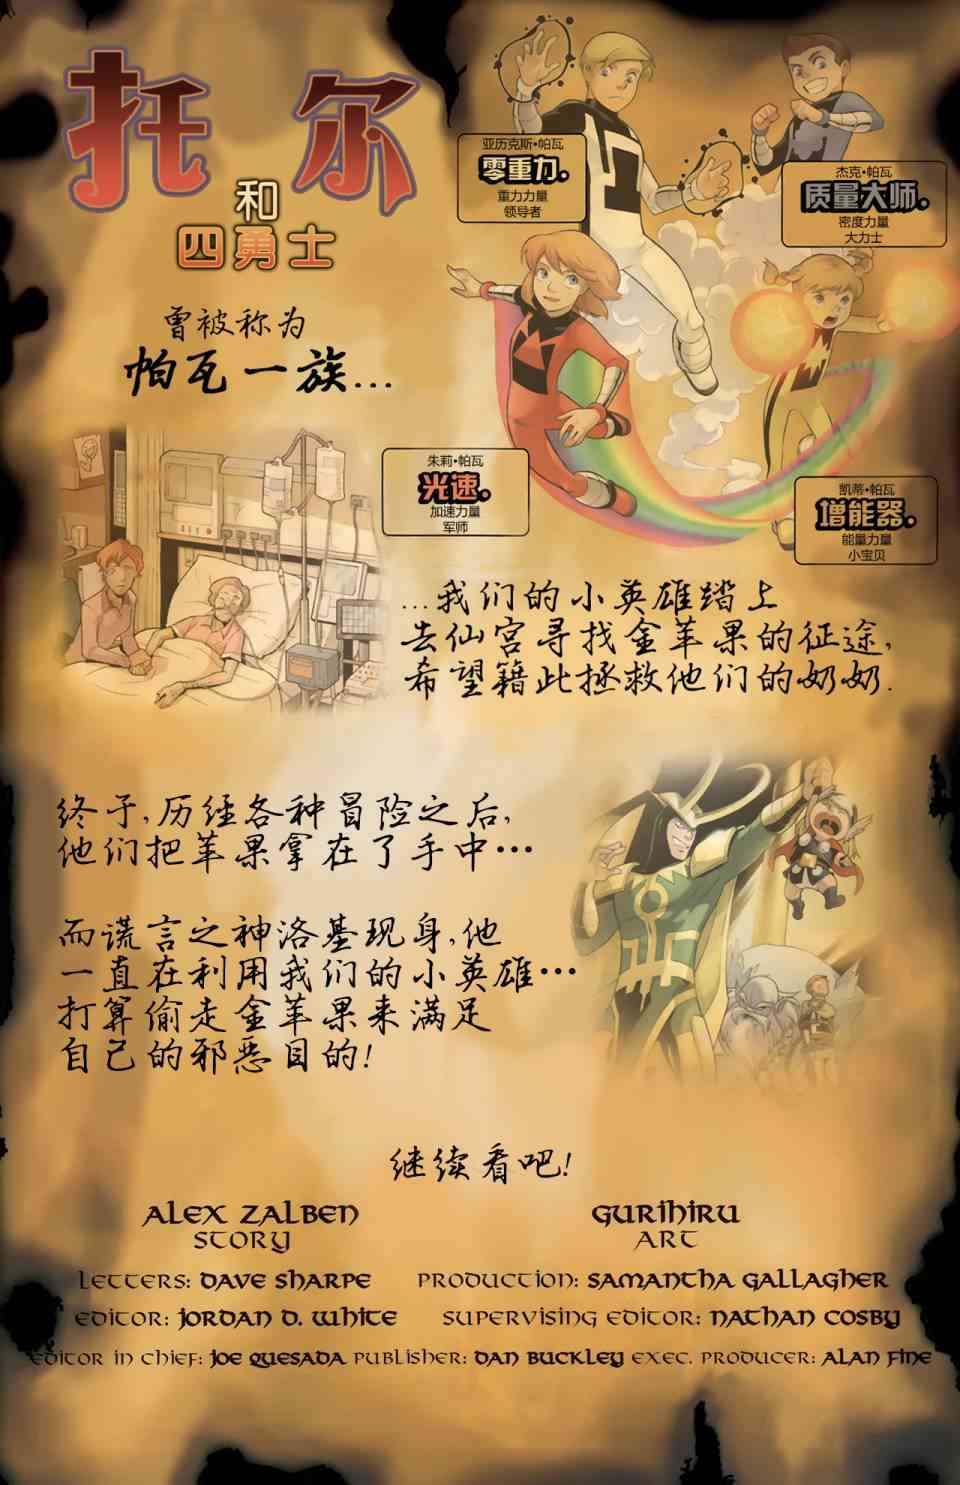 托 尔
和
四勇士
亚历克斯·帕瓦
零重力.
重力力量
领导者
杰克·帕瓦
质量大师.
密度力量
大力士
曾被称为
帕瓦一族...
朱莉·帕瓦
光速.
加速力量
军师
凯蒂·帕瓦
增能器.
能量力量
小宝贝
...我们的小英雄踏上
去仙宫寻找金苹果的征途,
希望籍此拯救他们的奶奶.
终于,历经各种冒险之后,
他们把苹果拿在了手中···
而谎言之神洛基现身,他
一直在利用我们的小英雄···
打算偷走金苹果来满足
自己的邪恶目的!
继续看吧!
ALEX ZALBEN
STORY
GURIHIRU
ART
LETTERS: DAVE SHARPE PRODUCTION: SAMANTHA GALLAGHER
EDITOR: JORDAN D. WHITE SUPERVISING EDITOR: NATHAN COSBY
EDITOR IN CHIEF: JOE QUESADA PUBLISHER: DAN BUCKLEY EXEC. PRODUCER: ALAN FINE